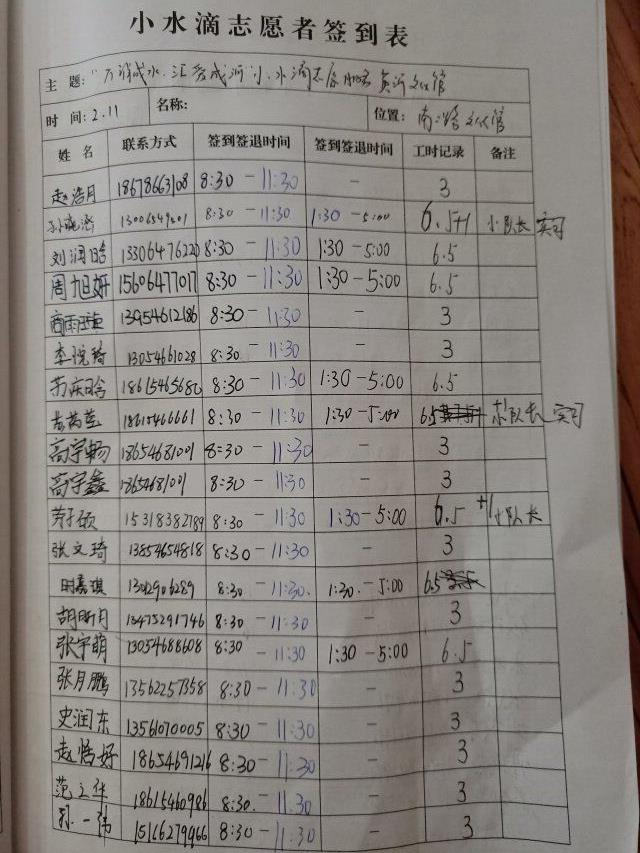 小水滴志愿者签到表
主 题: 志愿 黄河文化馆
时 间: 2.11 名称: 位置: 南二路文化馆
姓 名 联系方式 签到签退时间 签到签退时间 工时记录 备注
赵浩月 18678663108 8:30 - 11:30 - 3
8:30 - 11:30 1:30 - 5:00 6.5+1 小队长 实习
刘润晗 13306476220 8:30 - 11:30 1:30 - 5:00 6.5
周旭妍 15606477017 8:30 - 11:30 1:30 - 5:00 6.5
13954612186 8:30 - 11:30 - 3
李悦琦 13054661028 8:30 - 11:30 - 3
8:30 - 11:30 1:30 - 5:00 6.5
18615466661 8:30 - 11:30 1:30 - 5:00 6.5 队长 实习
高宇畅 18654681001 8:30 - 11:30 - 3
高宇鑫 18654681001 8:30 - 11:30 - 3
15318382789 8:30 - 11:30 1:30 - 5:00 6.5 +1 小队长
张文琦 13854654818 8:30 - 11:30 - 3
田嘉琪 13012906289 8:30 - 11:30 1:30 - 5:00 6.5
胡昕月 13475291746 8:30 - 11:30 - 3
张宇萌 13054688608 8:30 - 11:30 1:30 - 5:00 6.5
张月鹏 13562257358 8:30 - 11:30 - 3
史润东 13561070005 8:30 - 11:30 - 3
赵恬好 18654691216 8:30 - 11:30 - 3
范文华 18615460986 8:30 - 11:30 - 3
孙一 15166279966 8:30 - 11:30 - 3